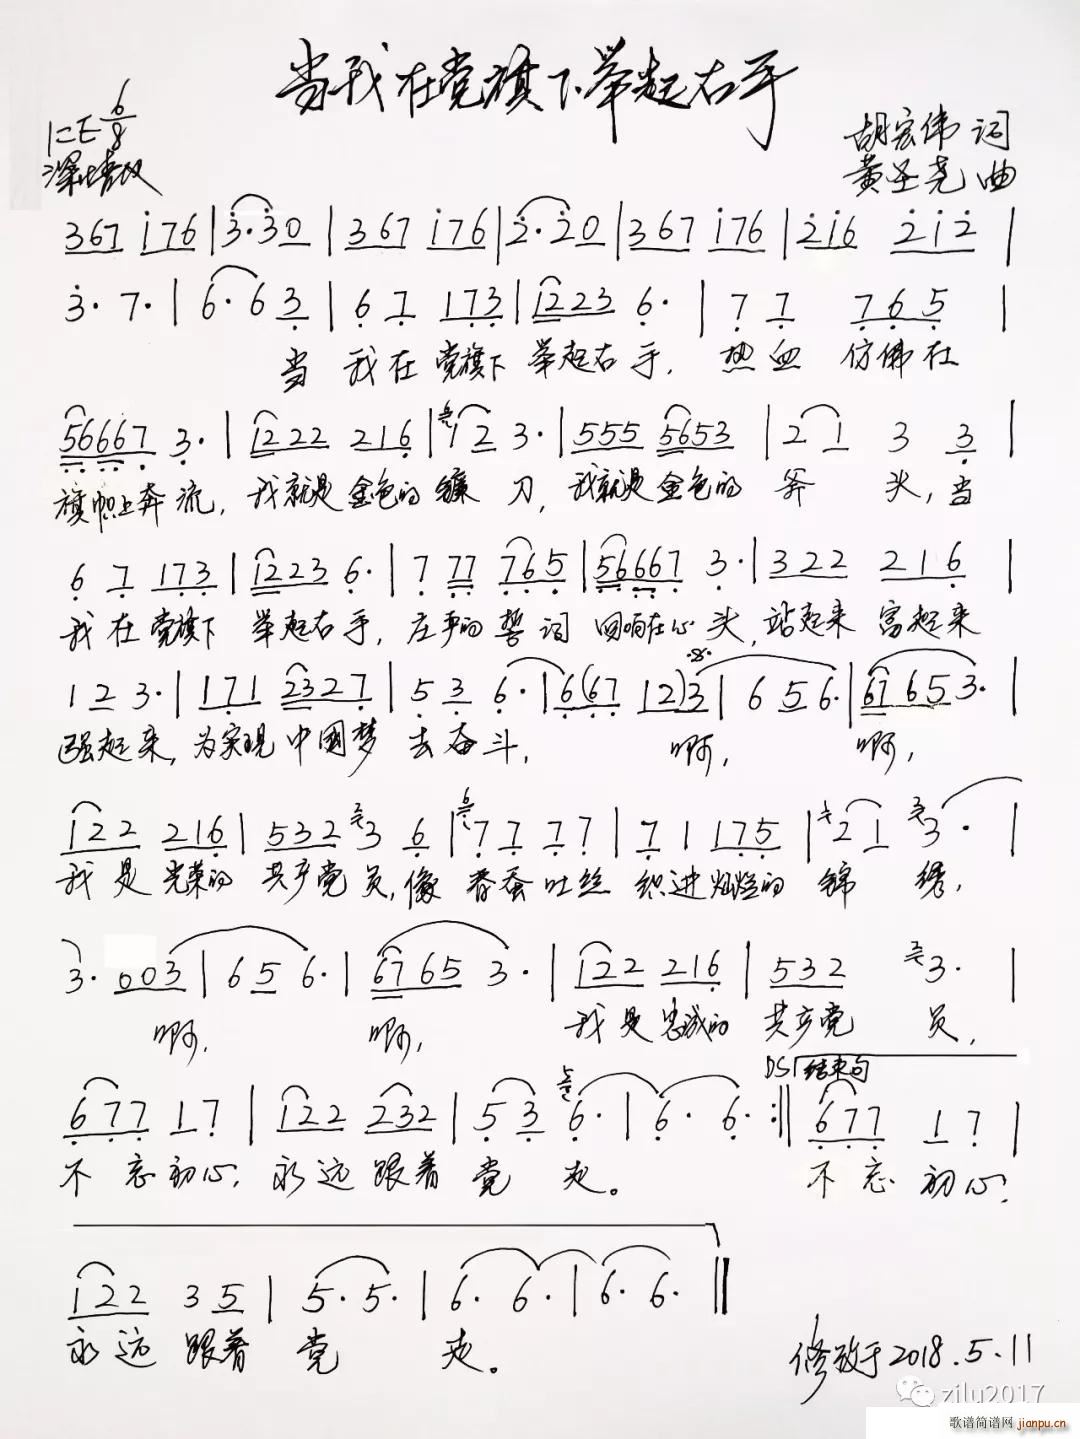 当我在党旗下举起右手
1=E 6/8
深情地
胡宏伟 词
黄圣尧 曲
367 176 | 3·30 | 367 176 | 2·20 | 367 176 | 216 212 |
3· 7· | 6·63 | 6 7 173 | 1223 6· | 7 7 765 |
当 我在党旗下 举起右手, 热血 仿佛在
56667 3· | 1222 216 | 12 3· | 555 5653 | 21 3 3 |
旗帜上奔流, 我就是金色的镰刀, 我就是金色的斧头, 当
6 7 173 | 1223 6· | 7 77 765 | 56667 3· | 322 216 |
我在党旗下 举起右手, 庄严的誓词 回响在心头, 站起来 富起来
12 3· | 171 2327 | 5 3 6· | 6(67 12)3 | 6 5 6· | 6765 3· |
强起来, 为实现中国梦 去奋斗, 啊, 啊,
122 216 | 532 3 6 | 7 7 7 7 | 7 1 175 | 21 3· |
我是光荣的 共产党员, 像春蚕吐丝 织进灿烂的锦绣,
3· 003 | 6 5 6· | 6765 3· | 122 216 | 532 3· |
啊, 啊, 我是忠诚的 共产党员,
DS 结束句
677 17 | 122 232 | 53 6· | 6· 6· :|| 677 17 |
不忘初心, 永远跟着党走。 不忘初心,
122 35 | 5· 5· | 6· 6· | 6· 6· ||
永远跟着党走。
修改于2018.5.11
zilu2017
歌谱简谱网 jianpu.cn